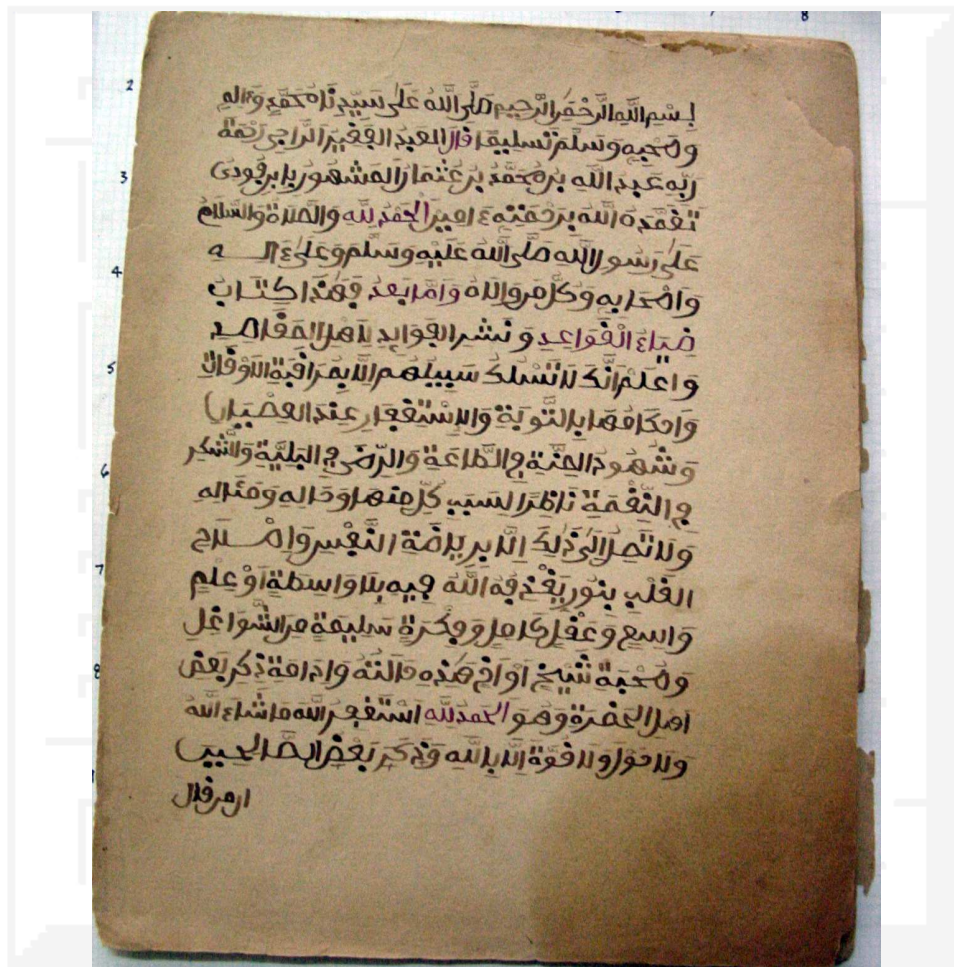 بسم الله الرحمن الرحيم صلى الله على سيدنا محمد وءاله
وصحبه وسلم تسليما قال العبد الفقير الراجي رحمة
ربه عبد الله بن محمد بن عثمان المشهور بابن فودي
تغمده الله برحمته ءامين الحمد لله والصلاة والسلام
على رسول الله صلى الله عليه وسلم وعلى ءاله
واصحابه وكل من والاه واما بعد فهذا كتاب
ضياء القواعد ونشر الفوايد لاهل المقاصد
واعلم انك لا تسلك سبيلهم الا بمراقبة الاوقات
واحكامها بالتوبة والاستغفار عند العصيان
وشهود المنة في الطاعة والرضى في البلية والشكر
في النعمة ناظرا لسبب كل منها وحاله ومئاله
ولا تصل الى ذلك الا برياضة النفس واصلاح
القلب بنور يقذفه الله فيه بلا واسطة او علم
واسع وعقل كامل وفكرة سليمة من الشواغل
وصحبة شيخ او اخ هذه حالته وادامة ذكر بعض
اهل الحضرة وهو الحمد لله استغفر الله ما شاء الله
ولا حول ولا قوة الا بالله وذكر بعض الصالحين
ان من قال
2
3
4
5
6
7
8
8